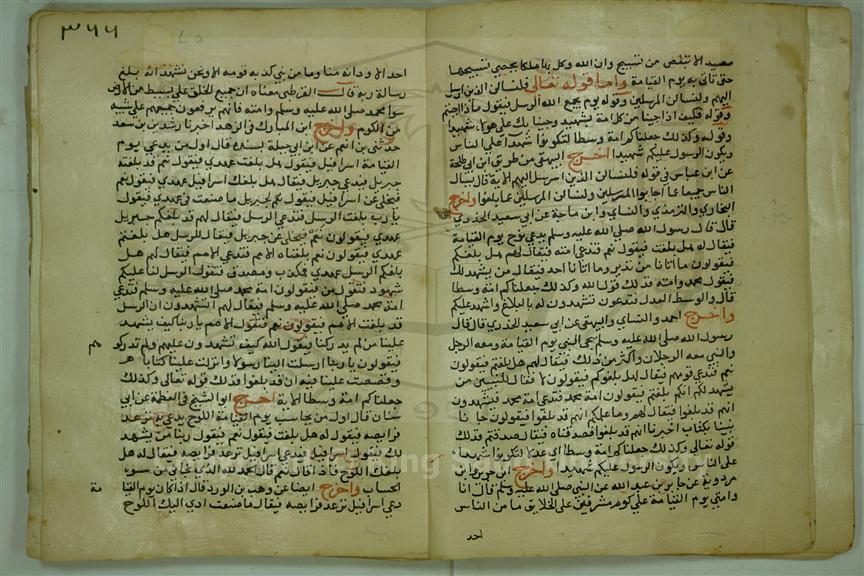 معيد الا تنقص من تسبيح وان الله وكل بها ملكا يحصي تسبيحها
حتى تاتي به يوم القيامة واما قوله تعالى فلنسالن الذين ارسل
اليهم ولنسالن المرسلين وقوله يوم يجمع الله الرسل فيقول ماذا اجبتم
وقوله فكيف اذا جينا من كل امة بشهيد وجينا بك على هولاء شهيدا
وقوله وكذلك جعلناكم امة وسطا لتكونوا شهداء على الناس
ويكون الرسول عليكم شهيدا اخرج البيهقي من طريق ابن ابي طلحة
عن ابن عباس في قوله فلنسالن الذين ارسل اليهم الاية قال يسال
الناس جميعا عما اجابوا المرسلين ولنسالن المرسلين عما بلغوا واخرج
البخاري والترمذي والنساي وابن ماجة عن ابي سعيد الخدري
قال قال رسول الله صلى الله عليه وسلم يدعى نوح يوم القيامة
فيقال له هل بلغت فيقول نعم فتدعى امته فيقال لهم هل بلغكم
فيقولون ما اتانا من نذير وما اتانا احد فيقال من يشهد لك
فيقول محمد وامته فذلك قول الله وكذلك جعلناكم امة وسطا
قال والوسط العدل فتدعون تشهدون له بالبلاغ واشهد عليكم
واخرج احمد والنساي والبيهقي عن ابي سعيد الخدري قال قال
رسول الله صلى الله عليه وسلم يجي النبي يوم القيامة ومعه الرجل
والنبي معه الرجلان واكثر من ذلك فيقال لهم هل بلغتم فيقولون
نعم فتدعى قومهم فيقال لهم هل بلغوكم فيقولون لا فقال للنبيين من
يشهد لكم انكم بلغتم فيقولون امة محمد فتدعى امة محمد فيشهدون
انهم قد بلغوا فيقال لهم وما علمكم انهم قد بلغوا فيقولون جانا
نبينا بكتاب اخبرنا انهم قد بلغوا فصدقناه فيقال صدقتم فذلك
قوله تعالى وكذلك جعلناكم امة وسطا اي عدلا لتكونوا شهداء
على الناس ويكون الرسول عليكم شهيدا واخرج ابن جرير وابن
مردويه عن جابر بن عبد الله عن النبي صلى الله عليه وسلم قال انا
وامتي يوم القيامة على كوم مشرفين على الخلايق ما من الناس
احد
٣٦٦
احد الا ود انه منا وما من نبي كذبه قومه الا ونحن نشهد انه بلغ
رسالة ربه قال القرطبي معناه ان جميع الخلق على بسيط من الارض
سوا محمد صلى الله عليه وسلم وامته فانهم يرفعون جميعهم على شبه
من الكوم واخرج ابن المبارك في الزهد اخبرنا رشدين بن سعد
حدثني ابن انعم عن ابي جبلة بسنده قال اول من يدعى يوم
القيامة اسرافيل فيقول هل بلغت عهدي فيقول نعم قد بلغته
جبريل فيدعى جبريل فيقال هل بلغك اسرافيل عهدي فيقول نعم
فيخلى عن اسرافيل فيقول لجبريل ما صنعت في عهدي فيقول
يا رب بلغت الرسل فتدعى الرسل فيقال لهم قد بلغكم جبريل
عهدي فيقولون نعم فيخلى عن جبريل فيقال للرسل هل بلغتم
عهدي فيقولون نعم بلغناه الامم فتدعى الامم فيقال لهم هل
بلغكم الرسل عهدي فمكذب ومصدق فتقول الرسل لنا عليكم
شهود فيقول من فيقولون امة محمد صلى الله عليه وسلم فتدعى
امة محمد صلى الله عليه وسلم فيقال لهم اتشهدون ان الرسل
قد بلغت الامم فيقولون نعم فتقول الامم يا ربنا كيف يشهد
علينا من لم يدركنا فيقول الله كيف تشهدون عليهم ولم تدركوهم
فيقولون يا ربنا ارسلت الينا رسولا وانزلت علينا كتابا
وقصصت علينا فيه ان قد بلغوا فذلك قوله تعالى وكذلك
جعلناكم امة وسطا الاية اخرج ابو الشيخ في العظمة عن ابي
سنان قال اول من يحاسب يوم القيامة اللوح يدعى به ترعد
فرايصه فيقول له هل بلغت فيقول نعم فيقول ربنا من يشهد
لك فيقول اسرافيل فيدعى اسرافيل ترعد فرايصه فيقال له هل
بلغك اللوح فاذا قال نعم قال الحمد لله الذي نجاني من سوء
الحساب واخرج ايضا عن وهب بن الورد قال اذا كان يوم القيامة
دعي اسرافيل ترعد فرايصه فيقال ما صنعت ادي اليك اللوح